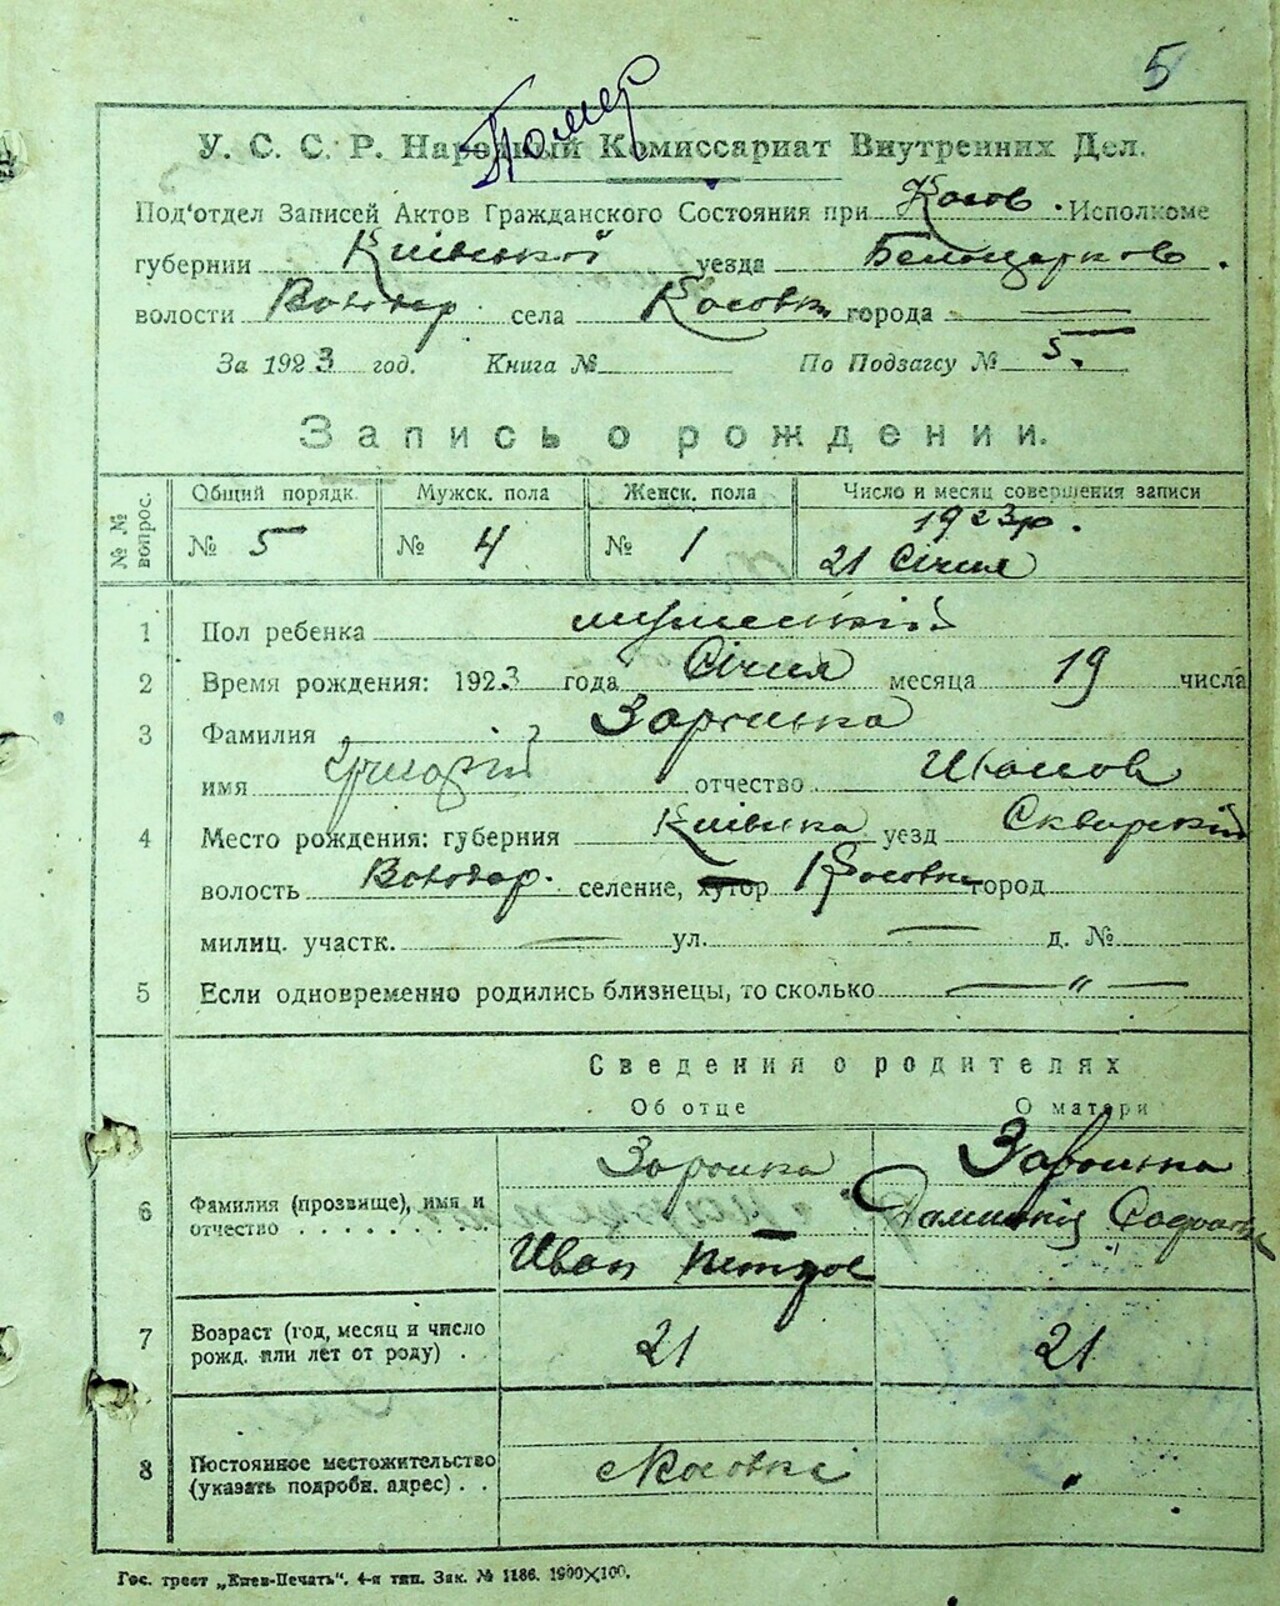 5
Помер
У. С. С. Р. Народный Комиссариат Внутренних Дел.
Под'отдел Записей Актов Гражданского Состояния при Косов. Исполкоме
губернии Київської уезда Белоцерков.
волости Володар села Косовки города —
За 1923 год. Книга № По Подзагсу № 5.
Запись о рождении.
№ № вопрос. Общий порядк. Мужск. пола Женск. пола Число и месяц совершения записи
№ 5 № 4 № 1 1923 р.
21 Січня
1 Пол ребенка мужеський
2 Время рождения: 1923 года Січня месяца 19 числа
3 Фамилия
имя Григорій отчество Иванов
4 Место рождения: губерния Київска уезд Сквирский
волость Володар. селение, хутор Косовка город
милиц. участк. — ул. — д. №
5 Если одновременно родились близнецы, то сколько — " —
Сведения о родителях
Об отце О матери
6 Фамилия (прозвище), имя и
отчество . . . . . . .
Иван Петров
7 Возраст (год, месяц и число
рожд. или лет от роду) . . 21 21
8 Постоянное местожительство
(указать подробн. адрес) . . с Косовка "
Гос. трест „Киев-Печать“. 4-я тип. Зак. № 1186. 1900×100.